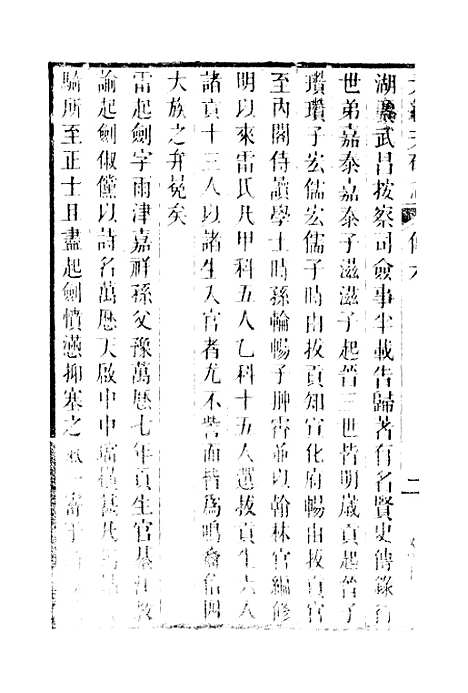 湖廣武昌按察司僉事半載告歸著有名賢史傳錄行
世弟嘉泰嘉泰子滋滋子起晉三世皆明歲貢起晉子
瓚瓚子宏儒宏儒子時由拔貢知宣化府暢由拔貢官
至內閣侍讀學士時孫輪暢子翀霄並以翰林官編修
明以來雷氏凡甲科五人乙科十五人選拔貢生六人
諸貢十三人以諸生入官者尤不訾面皆為鳴裔信四
大族之弁冕矣
雷起劍字雨津嘉祥孫父豫萬歷七年貢生官綦江教
諭起劍俶儻以詩名萬歷天啟中中璫
騎所至正士且盡起劍憤懣抑塞之